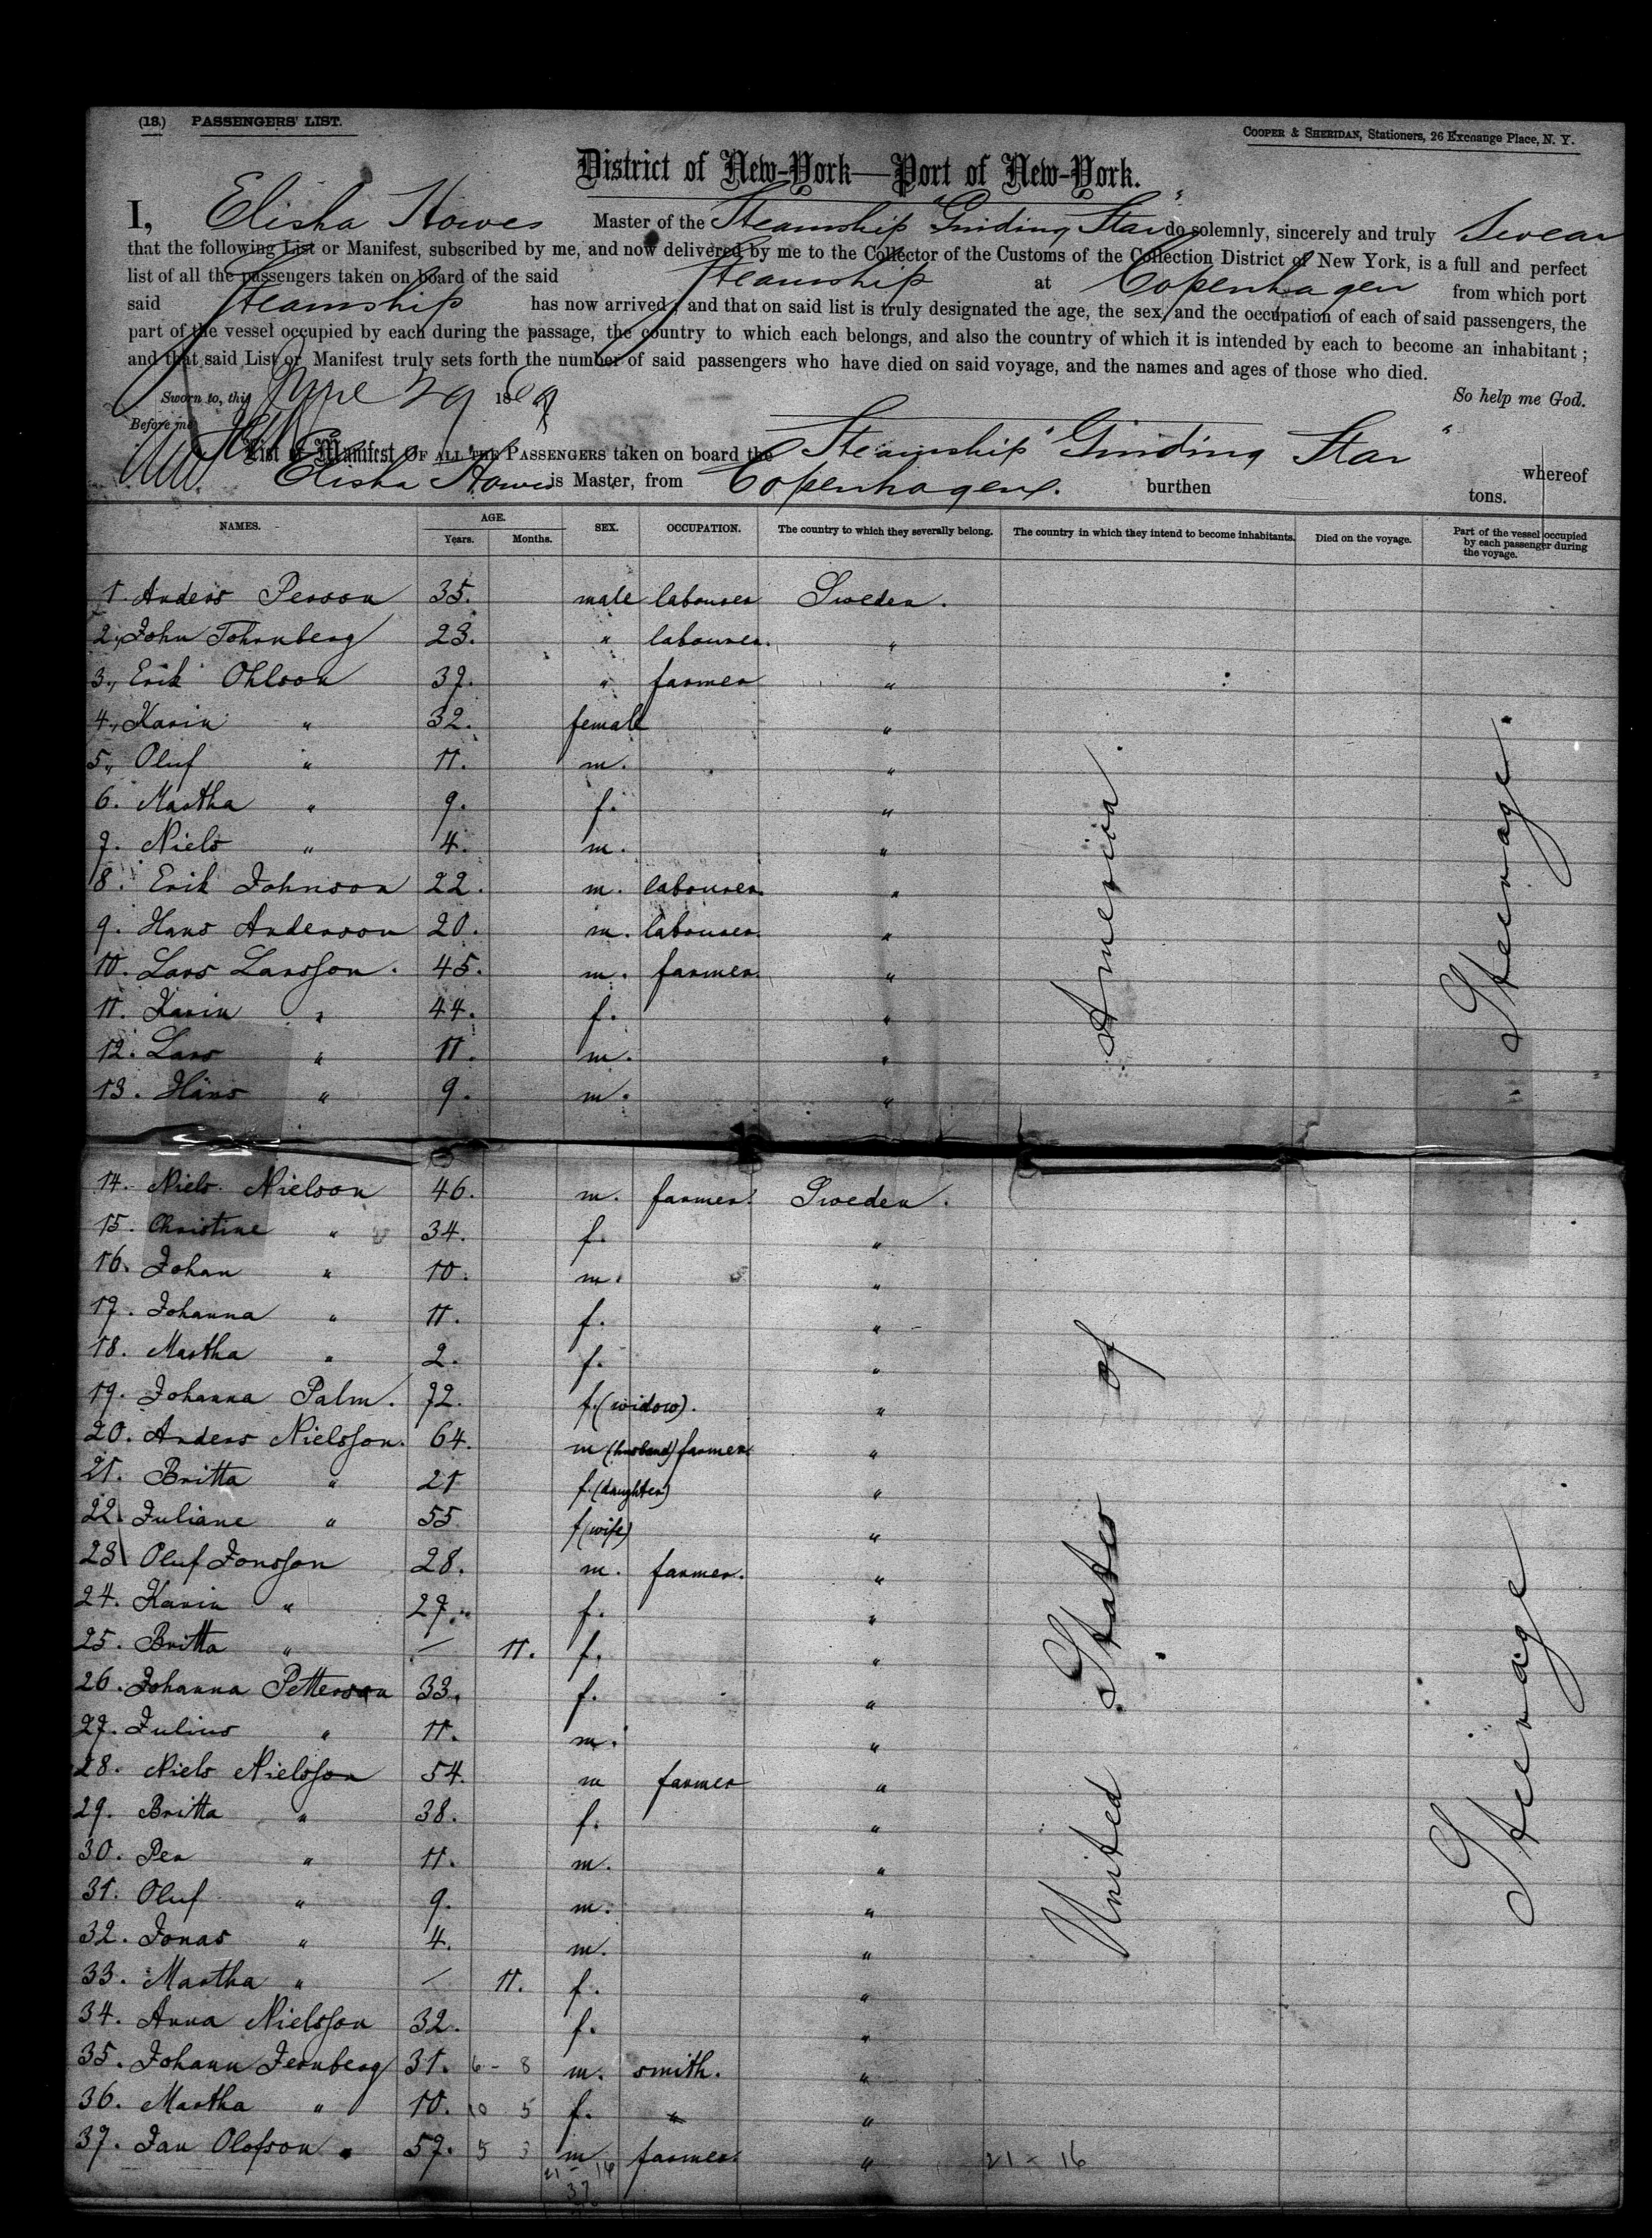 (18.) PASSENGERS' LIST.
COOPER & SHERIDAN, Stationers, 26 Exchange Place, N. Y.
District of New-York—Port of New-York.
I, Elisha Howes Master of the Steamship "Guiding Star" do solemnly, sincerely and truly Swear
that the following List or Manifest, subscribed by me, and now delivered by me to the Collector of the Customs of the Collection District of New York, is a full and perfect
list of all the passengers taken on board of the said Steamship at Copenhagen from which port
said Steamship has now arrived; and that on said list is truly designated the age, the sex, and the occupation of each of said passengers, the
part of the vessel occupied by each during the passage, the country to which each belongs, and also the country of which it is intended by each to become an inhabitant;
and that said List or Manifest truly sets forth the number of said passengers who have died on said voyage, and the names and ages of those who died.
So help me God.
Sworn to, this June 29 1869
Before me
List or Manifest OF ALL THE PASSENGERS taken on board the Steamship "Guiding Star" whereof
Elisha Howes is Master, from Copenhagen. burthen tons.
NAMES. AGE. Years. Months. SEX. OCCUPATION. The country to which they severally belong. The country in which they intend to become inhabitants. Died on the voyage. Part of the vessel occupied by each passenger during the voyage.
1. Anders Person 35. male labourer Sweden.
2. John Tohrnberg 23. " labourer. "
3. Erik Ohlson 37. " farmer "
4. Karin " 32. female "
5. Oluf " 11. m. "
6. Martha " 9. f. "
7. Niels " 4. m. "
8. Erik Johnson 22. m. labourer. "
9. Hans Anderson 20. m. labourer. "
10. Lars Larsson. 45. m. farmer. "
11. Karin " 44. f. "
12. Lars " 11. m. "
13. Hans " 9. m. "
14. Niels Nielson 46. m. farmer. Sweden.
15. Christine " 34. f. "
16. Johan " 10. m. "
17. Johanna " 11. f. "
18. Martha " 2. f. "
19. Johanna Palm. 72. f. (widow). "
20. Anders Nielsson. 64. m (husband) farmer. "
21. Britta " 21 f. (daughter) "
22. Juliane " 55 f (wife) "
23. Oluf Jonsson 28. m. farmer. "
24. Karin " 27. f. "
25. Britta " — 11. f. "
26. Johanna Petterson 33. f. "
27. Julius " 11. m. "
28. Niels Nielsson 54. m farmer "
29. Britta " 38. f. "
30. Per " 11. m. "
31. Oluf " 9. m. "
32. Jonas " 4. m. "
33. Martha " — 11. f. "
34. Anna Nielsson 32. f. "
35. Johann Jernberg 31. 6 - 8 m. smith. "
36. Martha " 10. 10 5 f. "
37. Jan Olofson 57. 5 3 m farmer. "
21 - 16
21 - 16
37
United States of America.
Steerage.
Steerage